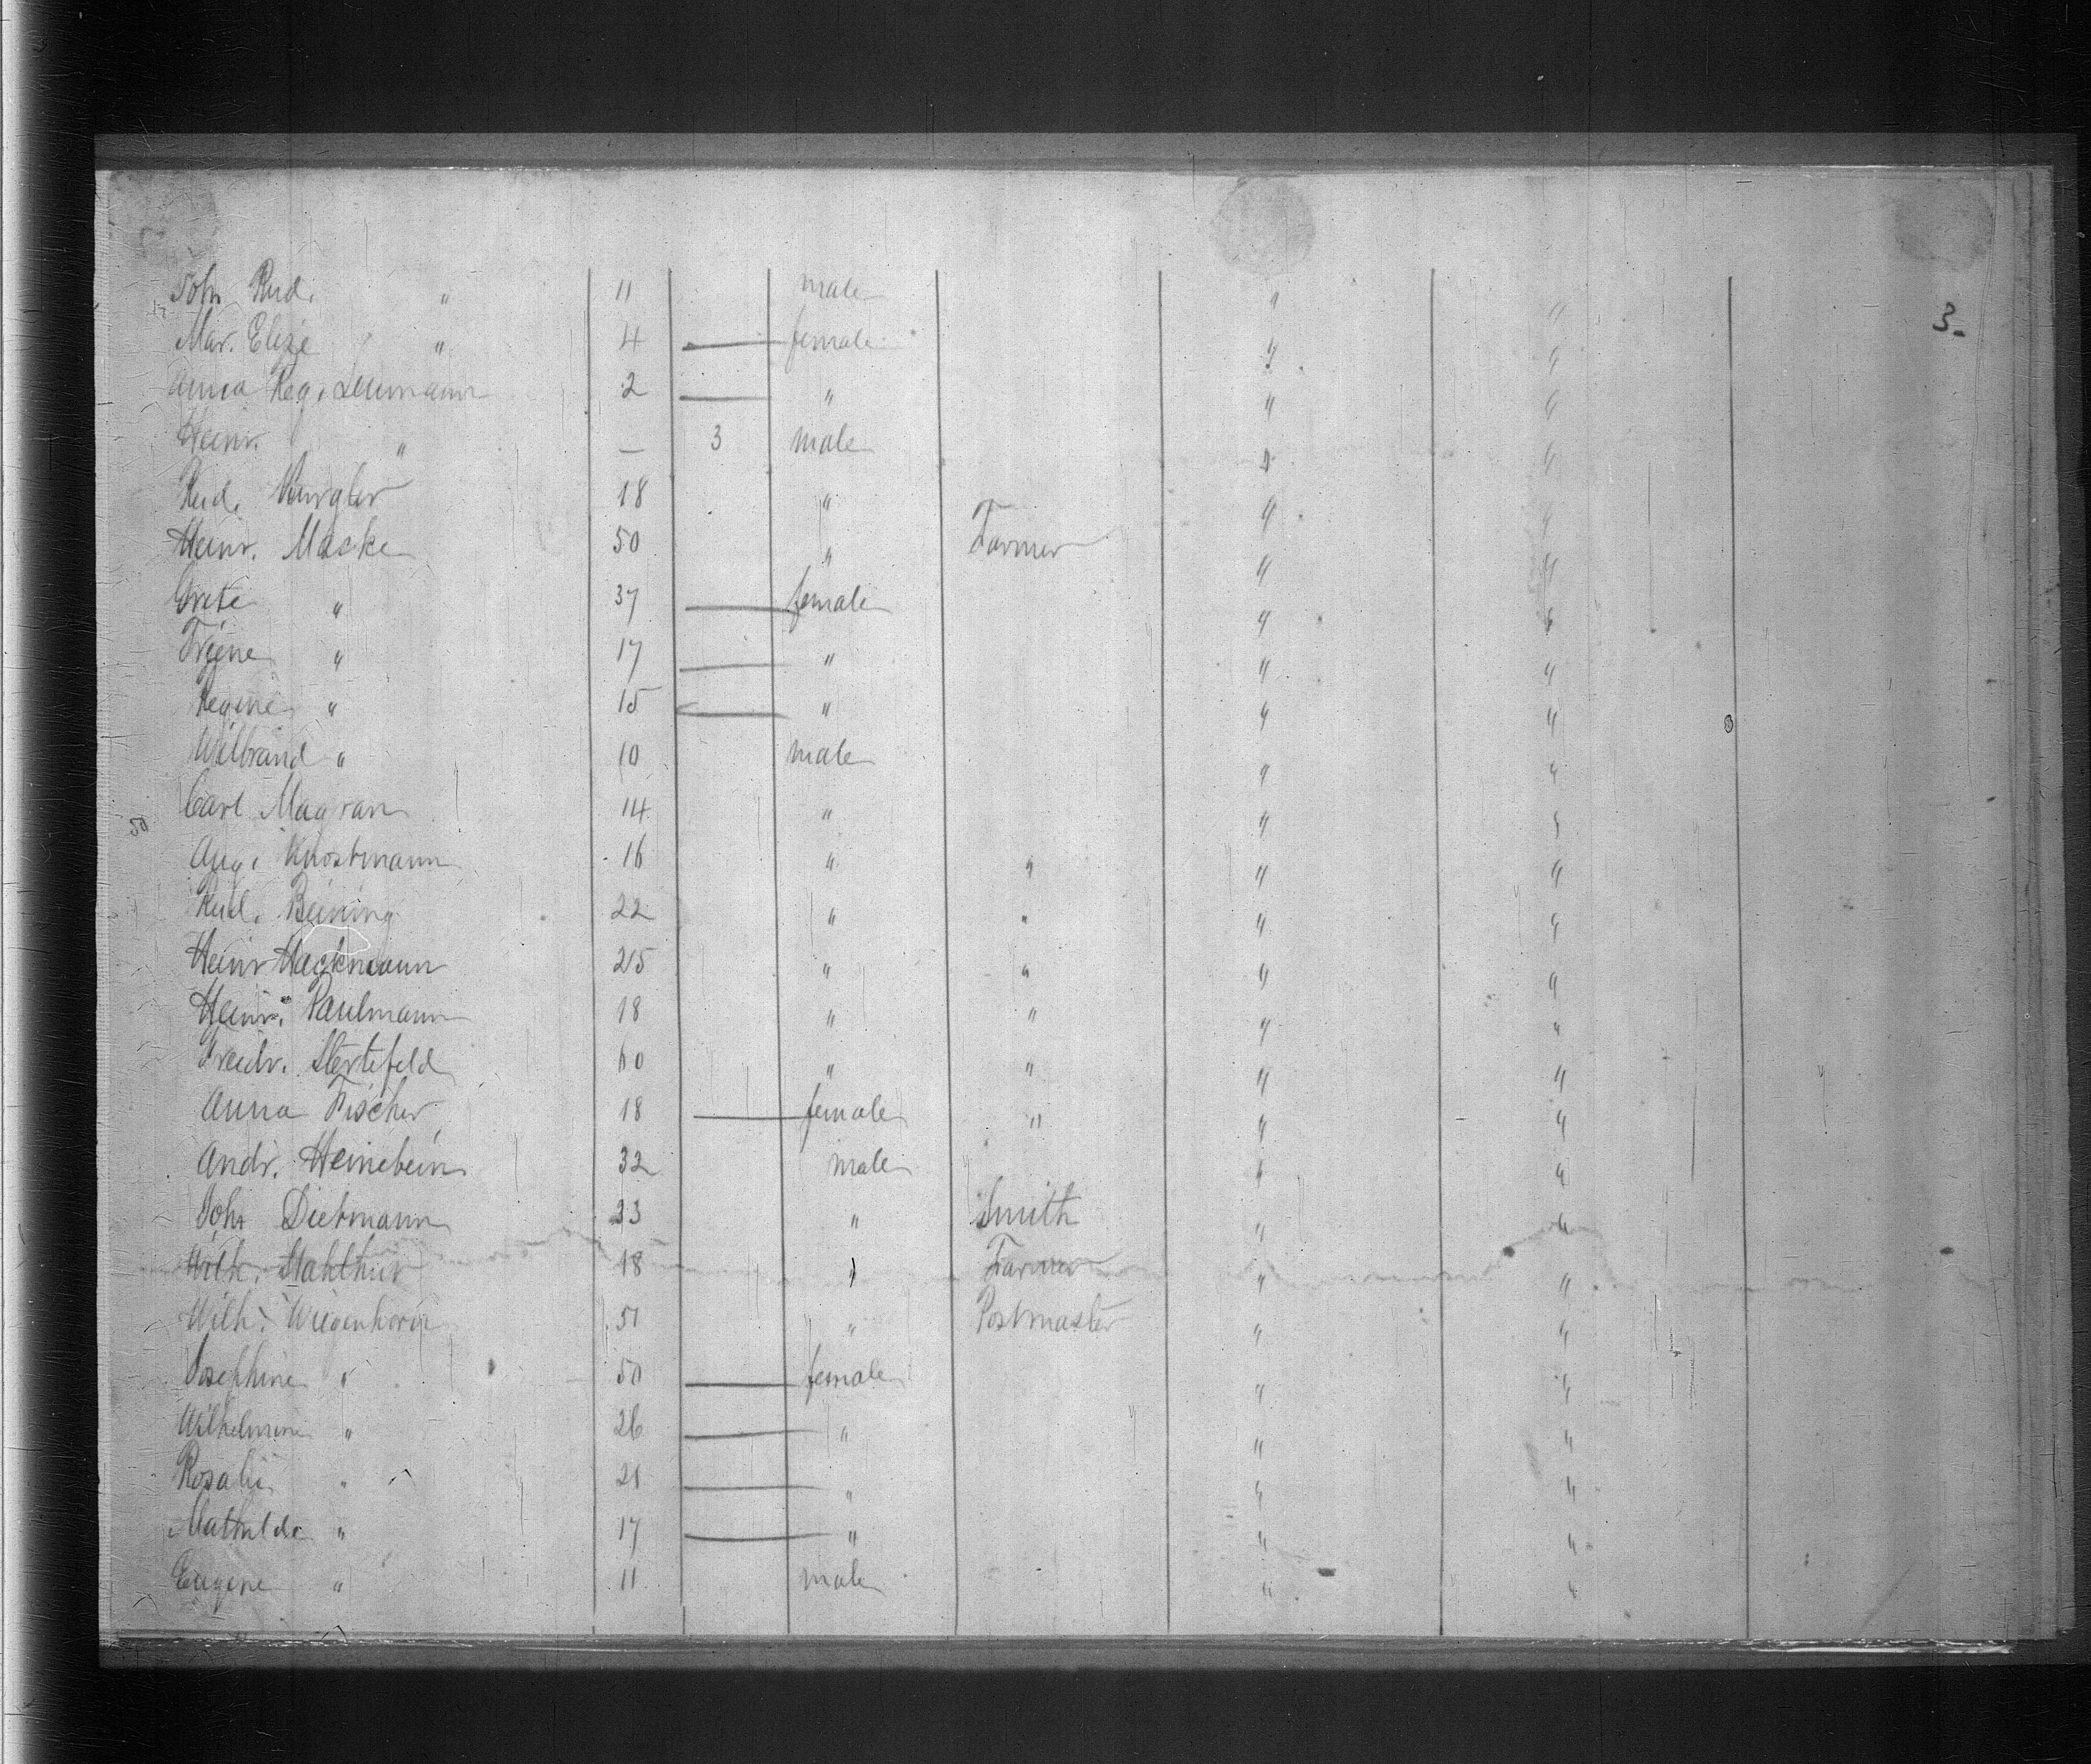 3-
Joh. Rud. " 11 male " "
Mar. Elize " 4 — female " "
Anna Reg. Leumann 2 — " " "
Heinr. " — 3 male " "
Rud. 18 " " "
Heinr. Macke 50 " Farmer " "
Grete " 37 — female " "
Trijne " 17 — " " "
Regine " 15 — " " "
Wilbrand " 10 male " "
50 Carl Magran 14 " " "
Aug. Knostmann 16 " " " "
Rud. Beining 22 " " " "
Heinr Hackmann 25 " " " "
Heinr. Paulmann 18 " " " "
Friedr. Stertefeld 60 " " " "
Anna Fischer 18 — female " " "
Andr. Heinebein 32 male " "
Joh. Dietmann 23 " Smith " "
Wilh. Stahlhut 18 " Farmer " "
Wilh. Wiegenhorn 51 " Postmaster " "
Josephine " 50 — female " "
Wilhelmine " 26 — " " "
Rosalie " 21 — " " "
Mathilde " 17 — " " "
Eugene " 11 male " "